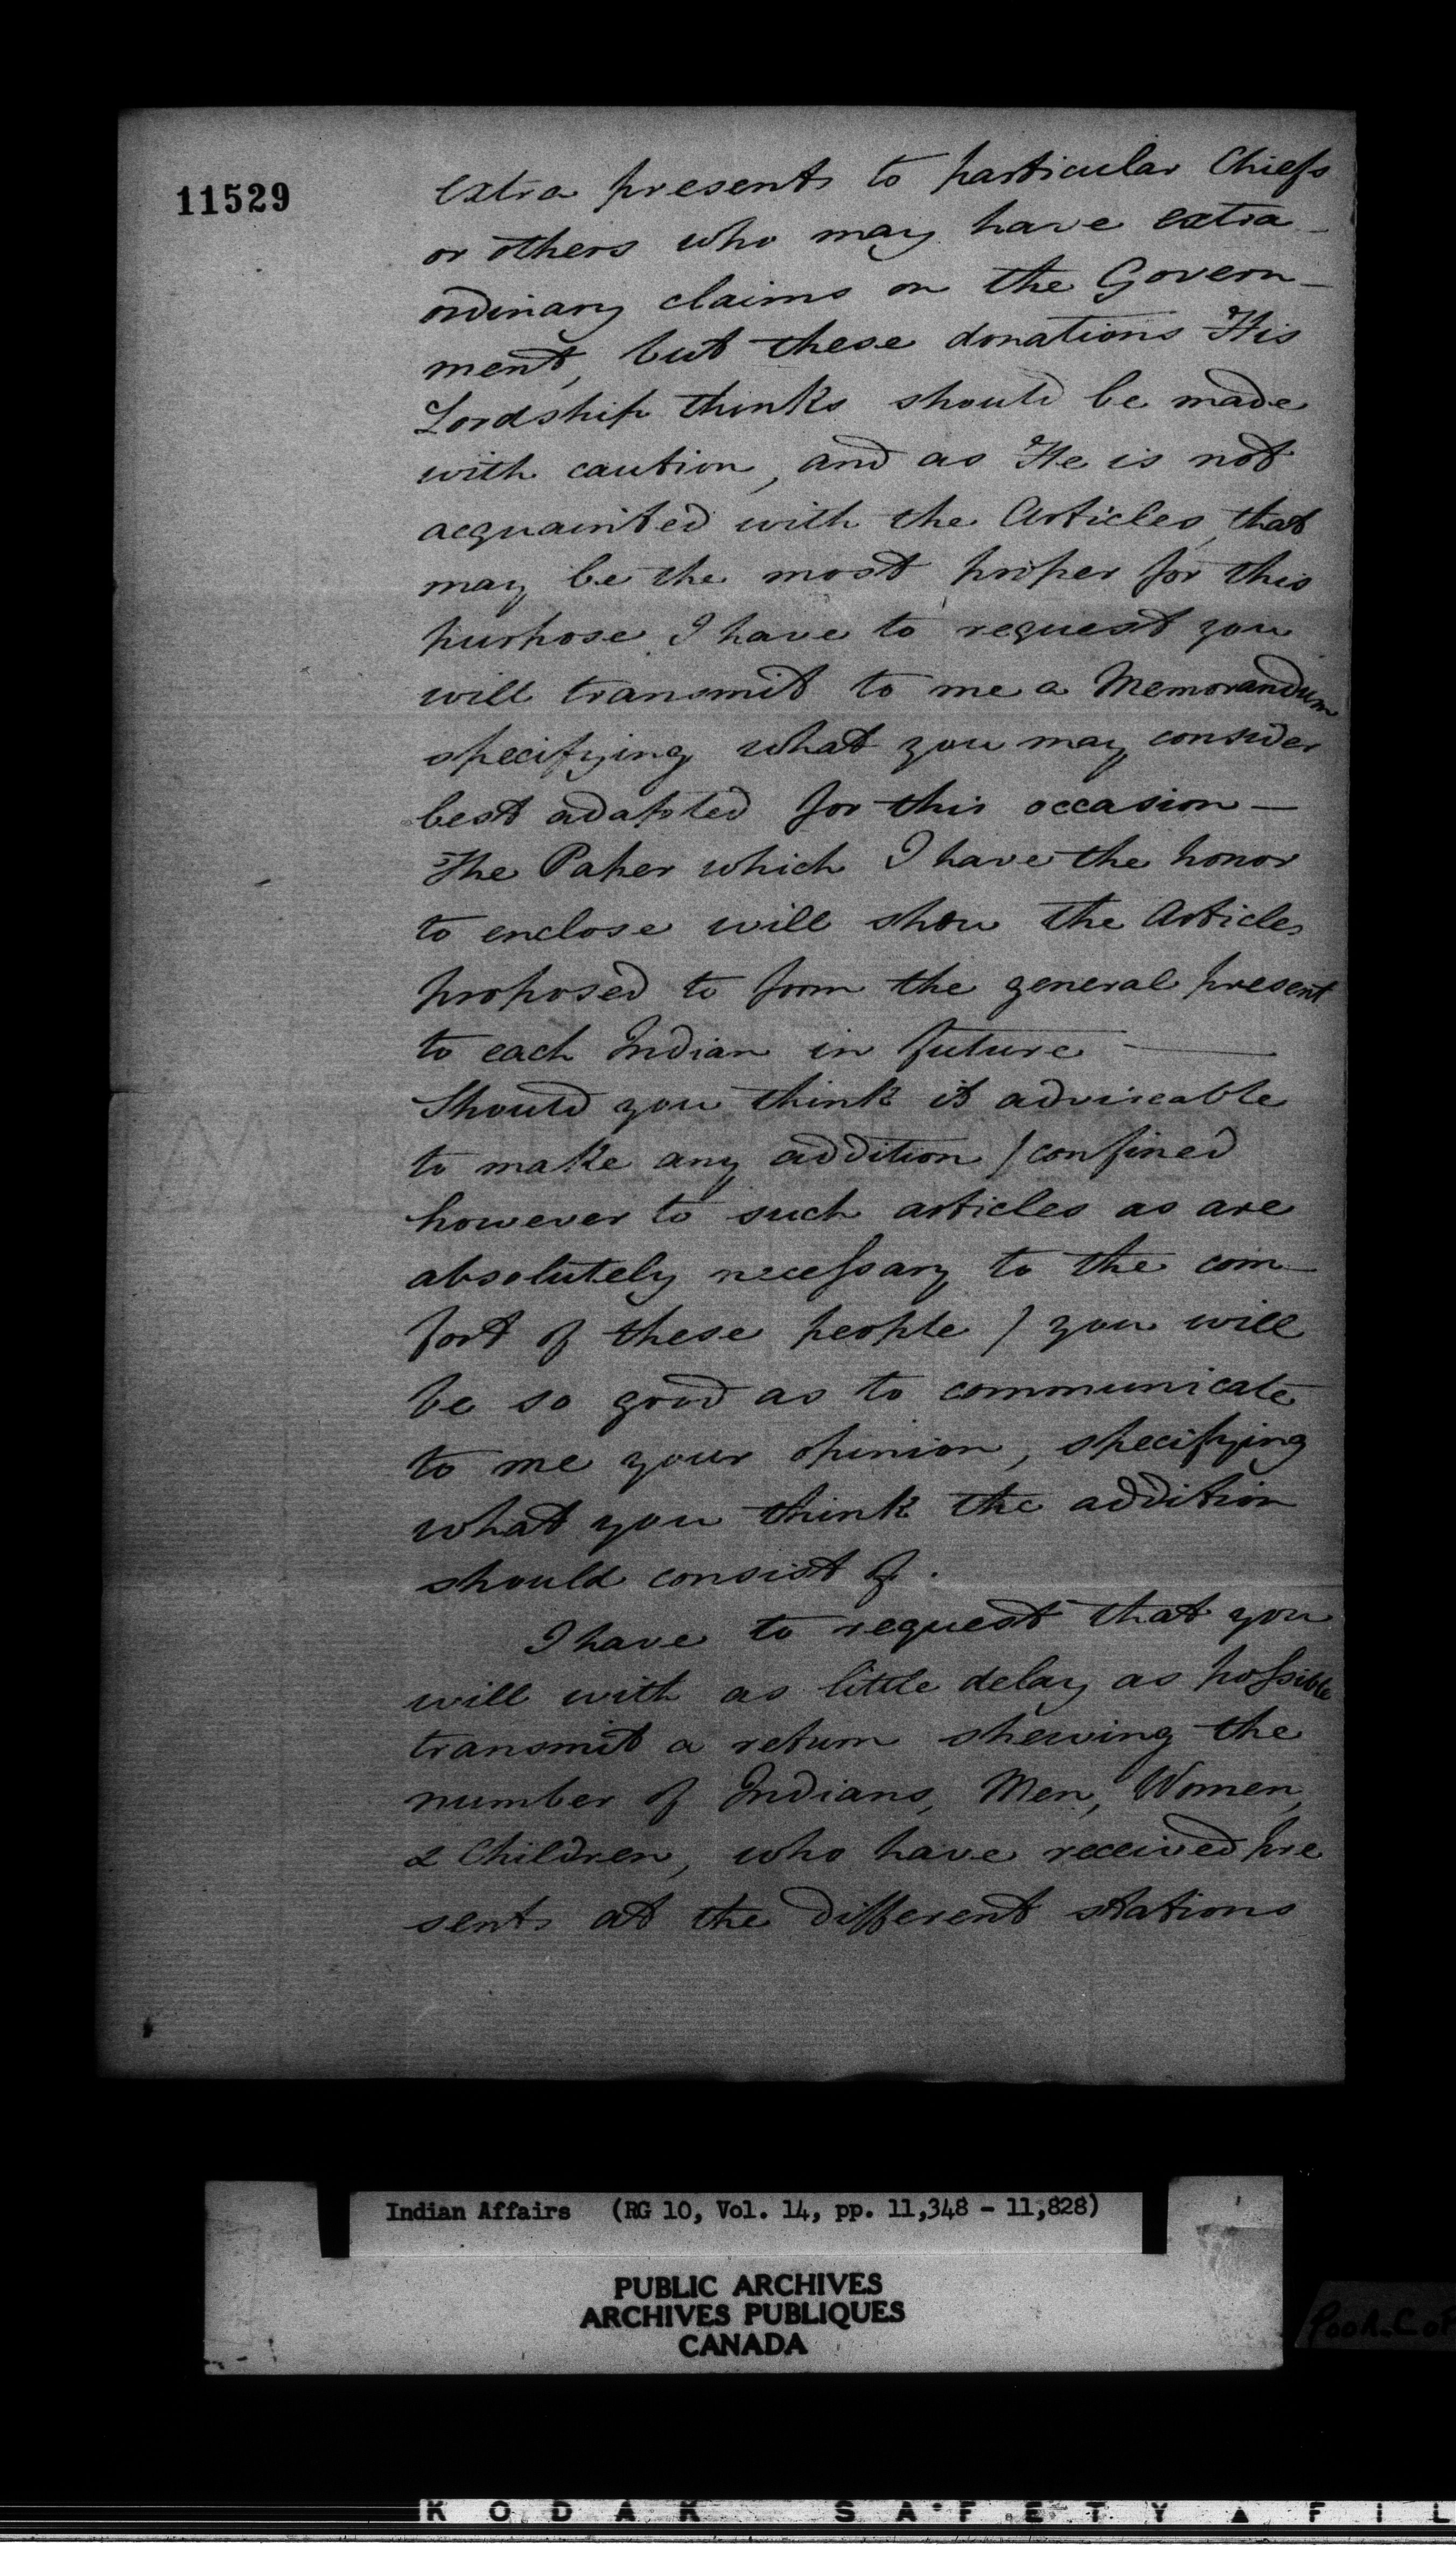 11529
extra presents to particular Chiefs
or others who may have extra-
ordinary claims on the Govern-
ment, but these donations His
Lordship thinks should be made
with caution, and as He is not
acquainted with the Articles, that
may be the most proper for this
purpose. I have to request you
will transmit to me a Memorandum
specifying what you may consider
best adapted for this occasion—
The Paper which I have the honor
to enclose will show the Articles
proposed to form the general present
to each Indian in future —
Should you think it adviseable
to make any addition / confined
however to such articles as are
absolutely necessary to the com-
fort of these people / you will
be so good as to communicate
to me your opinion, specifying
what you think the addition
should consist of.
I have to request that you
will with as little delay as possible
transmit a return shewing the
number of Indians, Men, Women,
& Children, who have received pre
sents at the different stations
Indian Affairs (RG 10, Vol. 14, pp. 11,348 - 11,828)
PUBLIC ARCHIVES
ARCHIVES PUBLIQUES
CANADA
KODAK SAFETY ▲ FIL